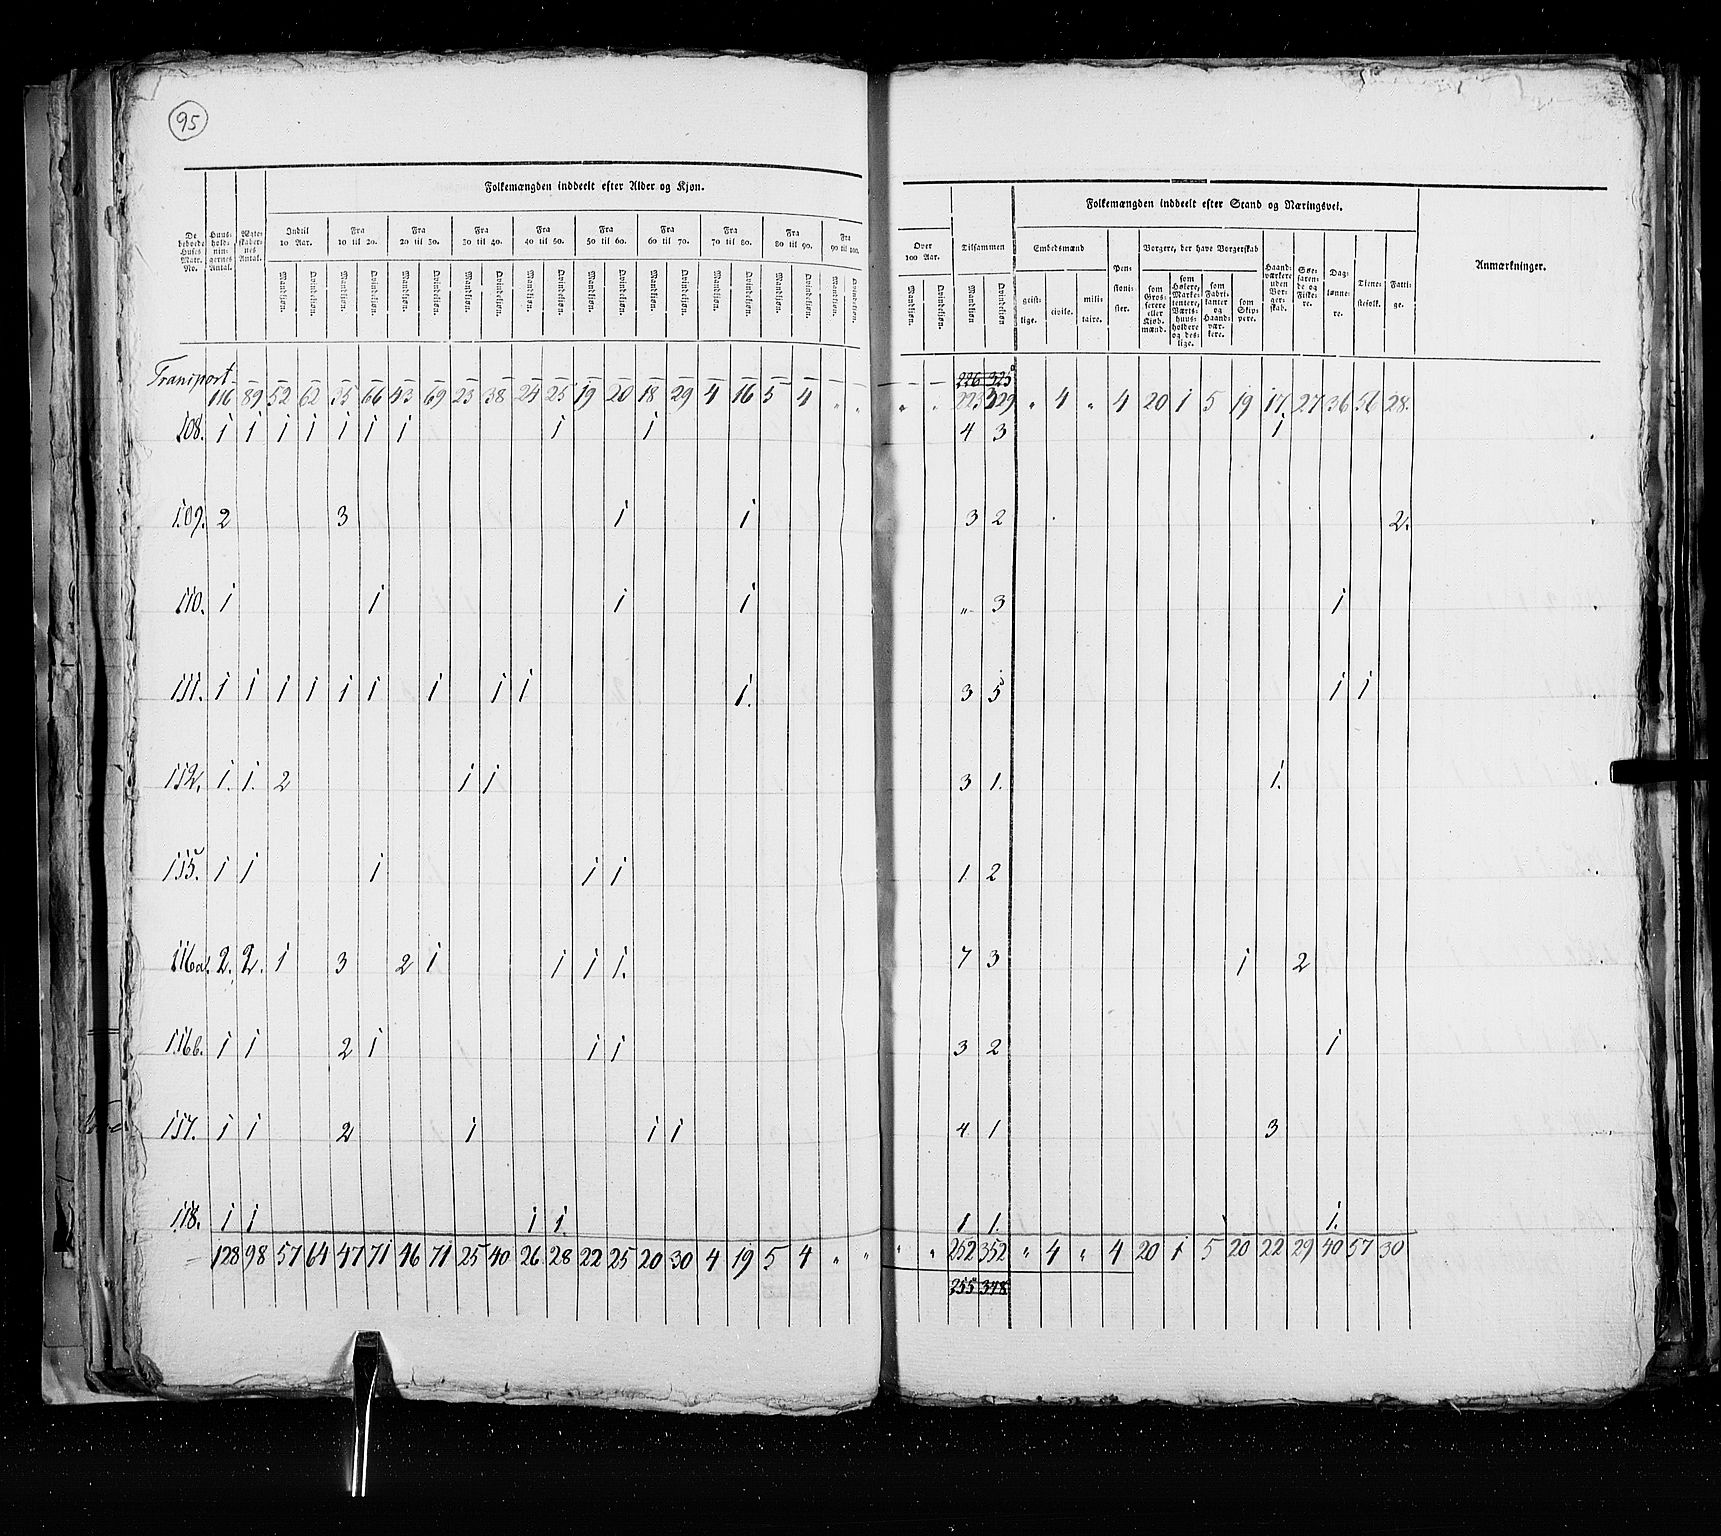 95
Folkemængden inddeelt efter Alder og Kjøn.
De beboede Huses Matr. No. | Huus-holdnin-gernes Antal. | Ægte-skaber-nes Antal. | Indtil 10 Aar. | Fra 10 til 20. | Fra 20 til 30. | Fra 30 til 40. | Fra 40 til 50. | Fra 50 til 60. | Fra 60 til 70. | Fra 70 til 80. | Fra 80 til 90. | Fra 90 til 100. | Over 100 Aar. | Tilsammen
Mandkjøn. Qvindekjøn. Mandkjøn. Qvindekjøn. Mandkjøn. Qvindekjøn. Mandkjøn. Qvindekjøn. Mandkjøn. Qvindekjøn. Mandkjøn. Qvindekjøn. Mandkjøn. Qvindekjøn. Mandkjøn. Qvindekjøn. Mandkjøn. Qvindekjøn. Mandkjøn. Qvindekjøn. Mandkjøn. Qvindekjøn. Mandkjøn. Qvindekjøn
Folkemængden inddeelt efter Stand og Næringsvei.
Embedsmænd | Pen-sioni-ster. | Borgere, der have Borgerskab | Haand-værkere uden Bor-ger-skab. | Søe-faren-de og Fiske-re. | Dag-lønne-re. | Tiene-stefolk. | Fatti-ge. | Anmærkninger.
geist-lige. | civile. | mili-taire. | som Gros-serere eller Kjøb-mænd. | som Høkere, Marke-tentere, Værts-huus-holdere og des-lige. | som Fabri-kanter og Haand-vær-kere. | som Skip-pere.
Transport 226 325
116 89 52 62 35 66 43 69 23 38 24 25 19 20 18 29 4 16 5 4 " " " " 223 329 " 4 " 4 20 1 5 19 17 27 36 56 28.
108. 1 1 1 1 1 1 1 1 1 4 3 1
109. 2 3 1 1 3 2 2.
110. 1 1 1 1 " 3 1
111. 1 1 1 1 1 1 1 1 1 1. 3 5 1 1
112. 1. 1. 2 1 1 3 1. 1.
115. 1 1 1 1 1 1 2
116a. 2. 2. 1 3 2 1 1 1 1. 7 3 1 2
116b. 1 1 2 1 1 1 3 2 1
117. 1 1 2 1 1 1 4 1 3
118. 1 1 1 1. 1 1. 1.
128 98 57 64 47 71 46 71 25 40 26 28 22 25 20 30 4 19 5 4 " " " " 252 352 " 4 " 4 20 1 5 20 22 29 40 57 30
255 348